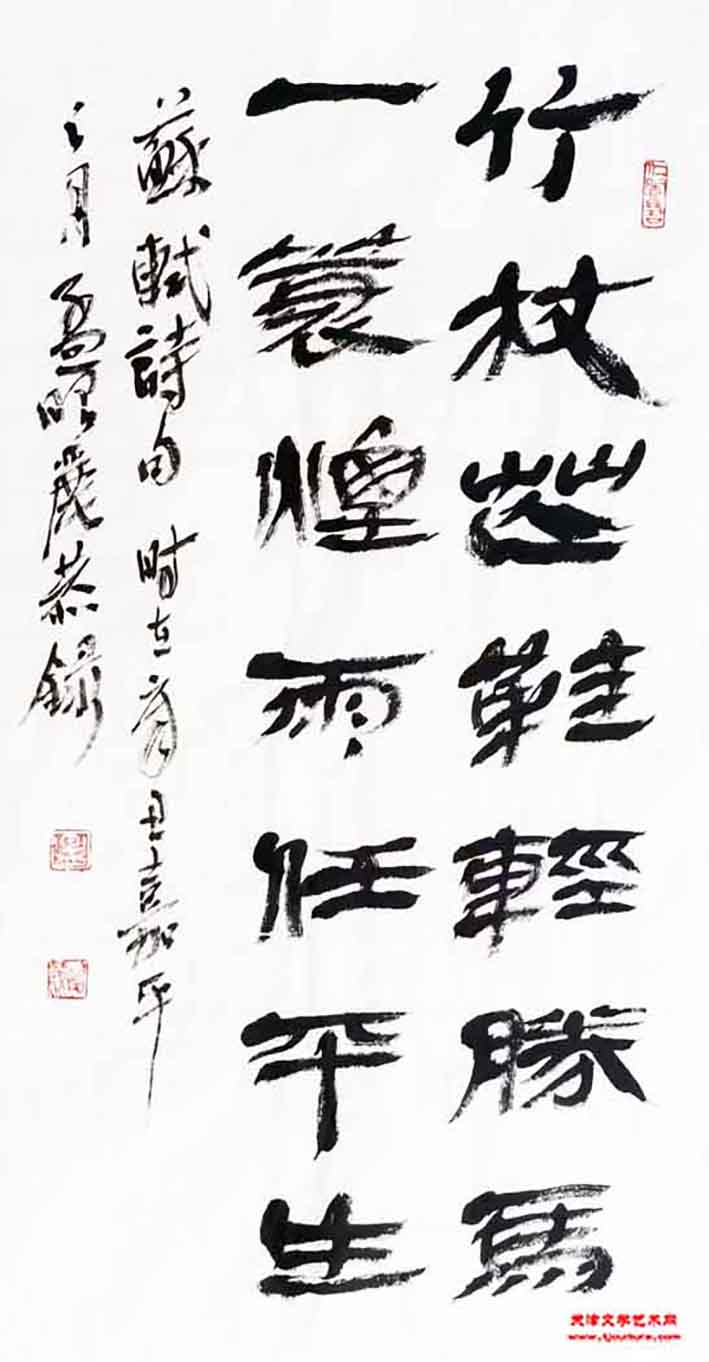 竹杖芒鞋輕勝馬
一蓑煙雨任平生
蘇軾詩句 時在丑嘉平
之月孟昭麗恭錄
天津文学艺术网